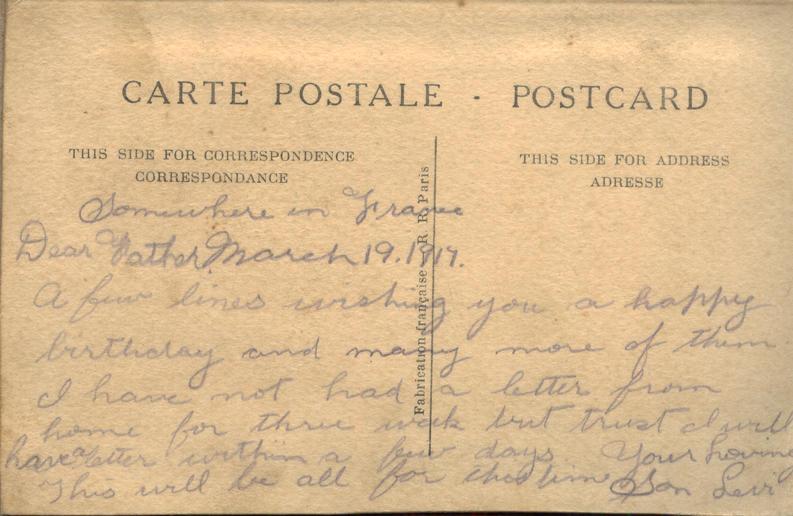 CARTE POSTALE - POSTCARD
THIS SIDE FOR CORRESPONDENCE
CORRESPONDANCE
THIS SIDE FOR ADDRESS
ADRESSE
Fabrication française - R R Paris
Somewhere in France
Dear Father March 19. 1917.
A few lines wishing you a happy
birthday and many more of them.
I have not had a letter from
home for three week but trust I will
have a letter within a few days Your Loving
This will be all for this time Son Levi